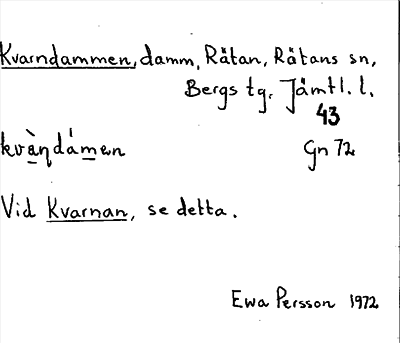 Kvarndammen, damm, Rätan, Rätans sn,
Bergs tg. Jämtl. l.
43
kvàṇdámen Gn 72
Vid Kvarnan, se detta.
Ewa Persson 1972